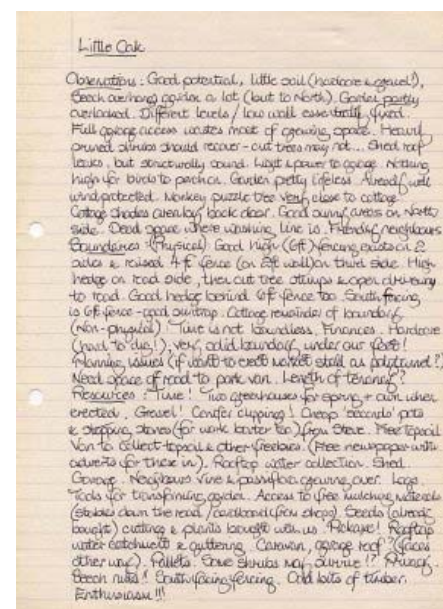 Little Oak
Observations: Good potential, little soil (hardcore & gravel!),
Beech overhangs garden a lot (but to North). Garden partly
overlooked. Different levels / low wall essentially fixed.
Full garage access wastes most of growing space. Heavily
pruned shrubs should recover - cut trees may not... Shed roof
leaks, but structurally sound. Light & power to garage. Nothing
high for birds to perch on. Garden pretty lifeless. Already well
wind protected. Monkey puzzle tree very close to cottage
Cottage shades area by back door. Good sunny areas on North
side. Dead space where washing line is. Friendly neighbours
Boundaries: (Physical) Good High (6ft) fencing exists on 2
sides & raised 4ft fence (on 2ft wall) on third side. High
hedge on road side, then cut tree stumps & open driveway
to road. Good hedge behind 6ft fence too. South facing
is 6ft fence - good suntrap. Cottage remainder of boundary
(Non-physical) Time is not boundless. Finances. Hardcore
(hard to dig!), very solid boundary under our feet!
Planning issues (if want to erect market stall or polytunnel?)
Need space off road to park van. Length of tenancy?
Resources: Time! Two greenhouses for spring + own when
erected. Gravel! Conifer clippings! Cheap 'seconds' pots
& stepping stones (for work barter too) from Steve. Free topsoil
Van to collect topsoil & other freebies. (Free newspaper with
adverts for these in). Rooftop water collection. Shed.
Garage. Neighbours vine & passiflora growing over. Logs
Tools for transforming garden. Access to free mulching materials
(stables down the road / cardboard from shops). Seeds (already
bought) cuttings & plants brought with us. Rooftop
water catchment & guttering. Caravan, garage roof? (faces
other way). Pallets. Some shrubs may survive!? Privacy.
Beech nuts! South facing fencing. Odd bits of timber.
Enthusiasm!!!